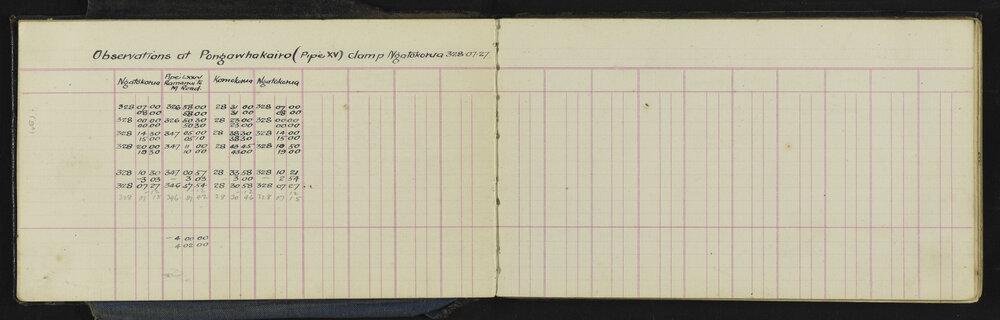 Observations at Pongawhakairo (Pipe XV) clamp Ngatokorua 328·07·27·
Ngatokorua Pipe LXXIV Kamokorua Ngatokorua
328 07 00 326 58 00 28 31 00 328 07 00
08 00 58 00 31 00 08 00
328 00 00 326 50 30 28 23 00 328 00 00
00 00 50 30 23 00 00 00
328 14 30 347 05 00 28 38 30 328 14 00
15 00 05 10 38 30 15 00
328 20 00 347 11 00 28 43 45 328 18 50
19 30 10 00 43 00 19 00
328 10 30 347 00 57 28 33 58 328 10 21
- 3 03 - 3 03 3 00 - 2 54
328 07 27 346 57 54 28 30 58 328 07 27
328 07 15 346 57 42 28 30 46 328 07 15
- 4 00 00
4 02 00